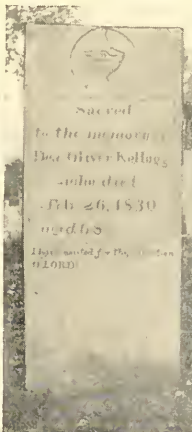 Sacred
to the memory
Dea Oliver Kellogg
who died
Feb 26, 1830
aged 68
I have waited for thy
O LORD